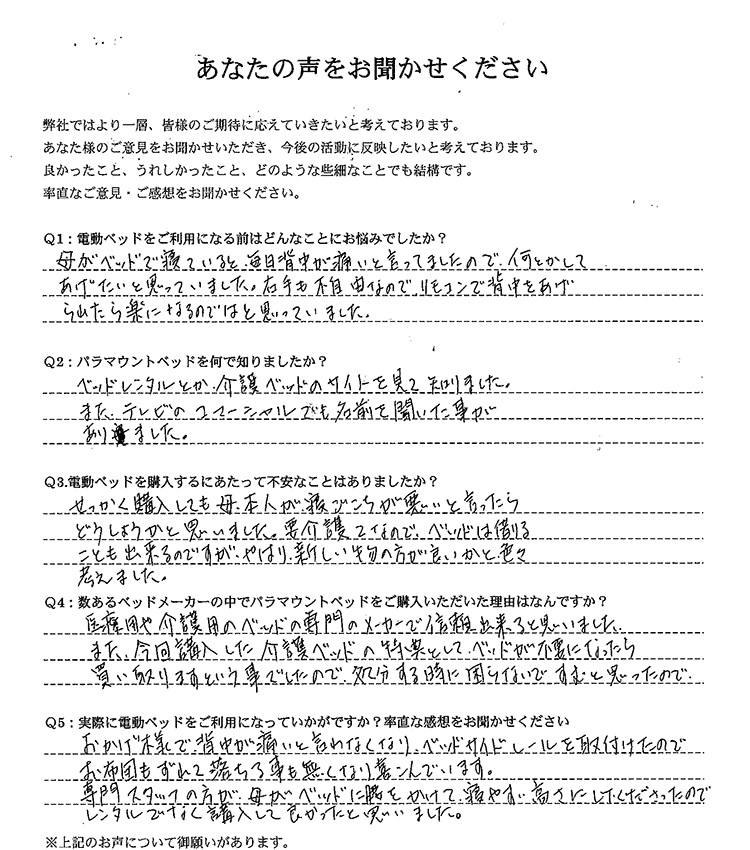 あなたの声をお聞かせください
弊社ではより一層、皆様のご期待に応えていきたいと考えております。
あなた様のご意見をお聞かせいただき、今後の活動に反映したいと考えております。
良かったこと、うれしかったこと、どのような些細なことでも結構です。
率直なご意見・ご感想をお聞かせください。
Q1：電動ベッドをご利用になる前はどんなことにお悩みでしたか？
母がベッドで寝ていると、毎日背中が痛いと言ってましたので、何とかして
あげたいと思っていました。右手も不自由なので、リモコンで背中をあげ
られたら楽になるのではと思っていました。
Q2：パラマウントベッドを何で知りましたか？
ベッドレンタルとか、介護ベッドのサイトを見て知りました。
また、テレビのコマーシャルでも名前を聞いた事が
ありました。
Q3.電動ベッドを購入するにあたって不安なことはありましたか？
せっかく購入しても母、本人が、寝ごこちが悪いと言ったら
どうしようかと思いました。要介護2なので、ベッドは借りる
ことも出来るのですが、やはり、新しい物の方が良いかと、色々
考えました。
Q4：数あるベッドメーカーの中でパラマウントベッドをご購入いただいた理由はなんですか？
医療用や介護用のベッドの専門のメーカーで信頼出来ると思いました。
また、今回購入した介護ベッドの特典として、ベッドが不要になったら
買い取りますという事でしたので、処分する時に困らないですむと思ったので、
Q5：実際に電動ベッドをご利用になっていかがですか？率直な感想をお聞かせください
おかげ様で、背中が痛いと言わなくなり、ベッドサイドレールを取付けたので
お布団もずれて落ちる事も無くなり喜んでいます。
専門スタッフの方が、母がベッドに腰をかけて、寝やすい高さにしてくださったので
レンタルでなく購入して良かったと思いました。
※上記のお声について御願いがあります。